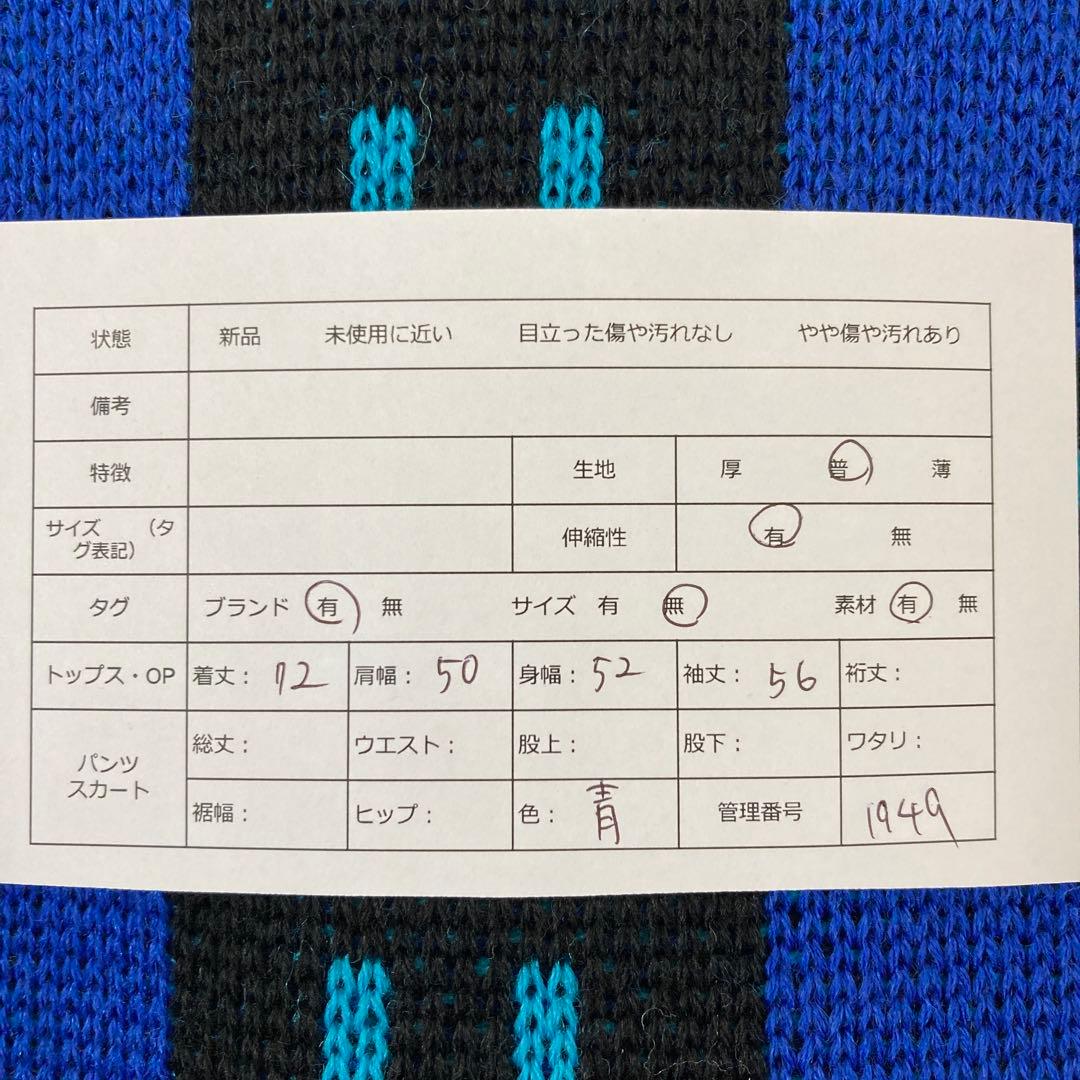 状態 新品 未使用に近い 目立った傷や汚れなし やや傷や汚れあり
備考
特徴 生地 厚 普 薄
サイズ （タ
グ表記） 伸縮性 有 無
タグ ブランド 有 無 サイズ 有 無 素材 有 無
トップス・OP 着丈： 72 肩幅： 50 身幅： 52 袖丈： 56 裄丈：
パンツ
スカート
総丈： ウエスト： 股上： 股下： ワタリ：
裾幅： ヒップ： 色： 青 管理番号 1949